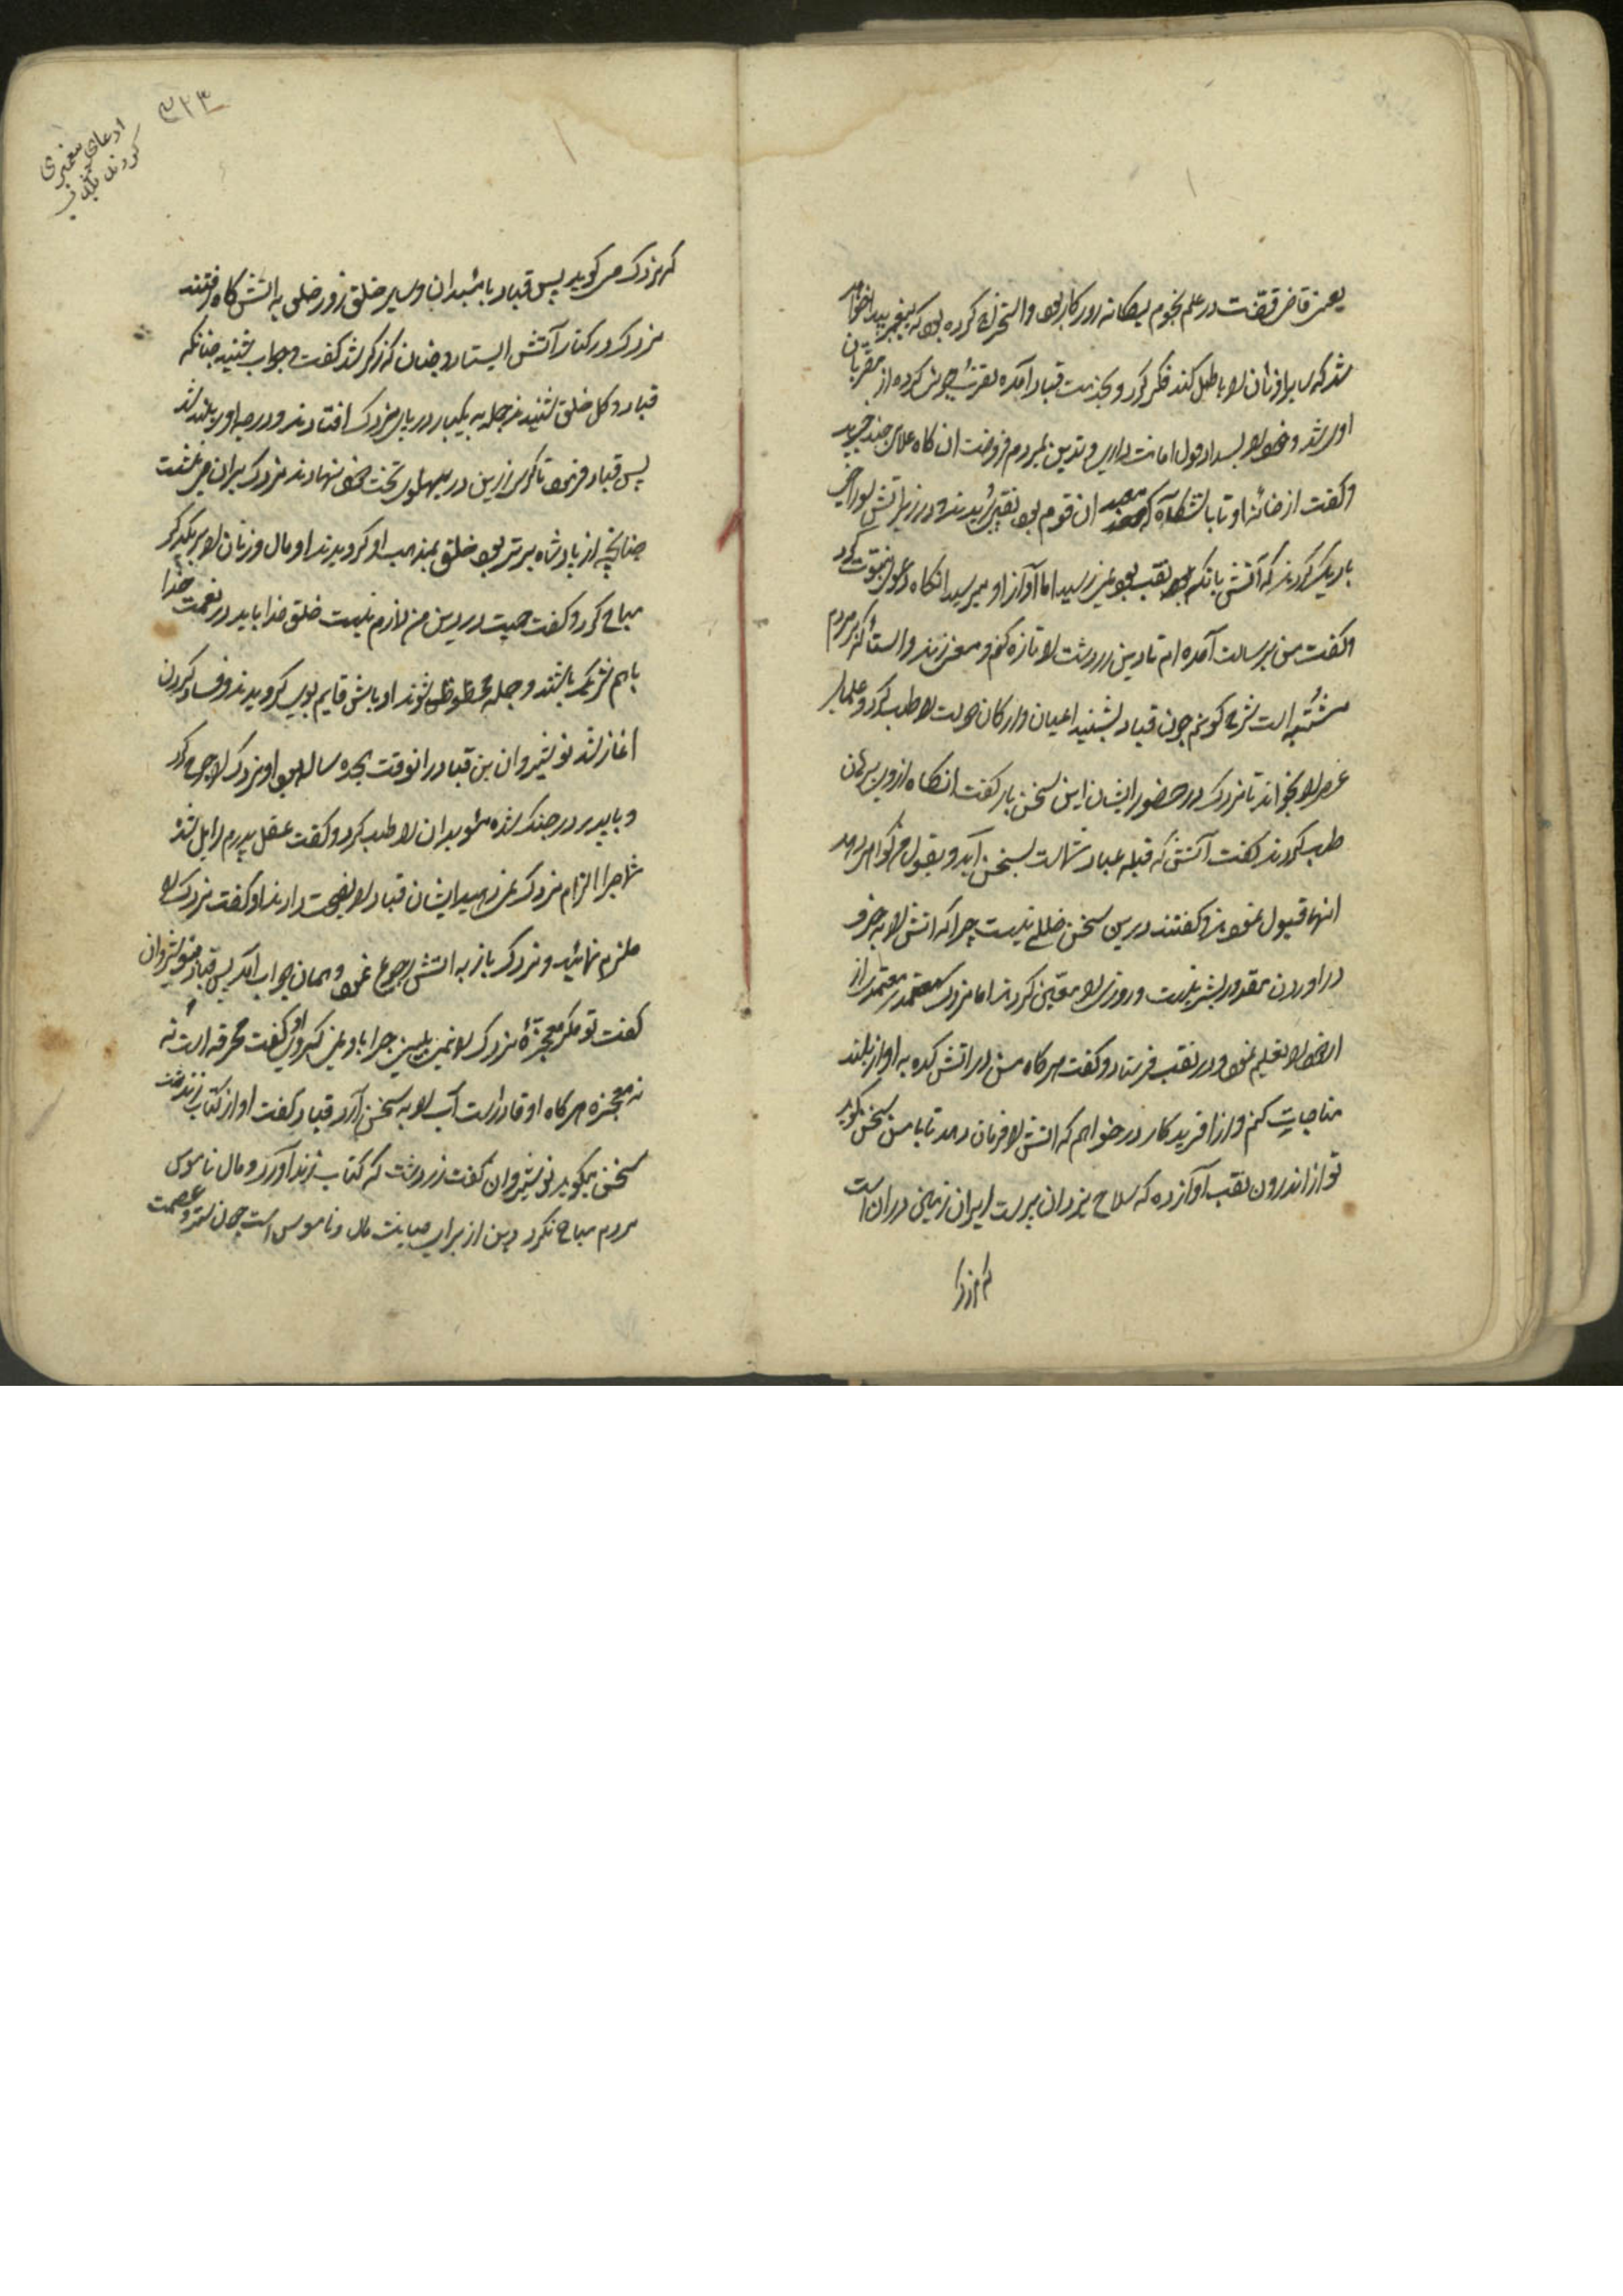 یعنی قاضی قضات در علم نجوم یکانه روزکار بود و استخراج کرده بود که پیغمبری پیدا خواهد
شد که سایر ادیان را باطل کند فکر کرد و بخدمت قباد آمده تقرب جوئی کرده از مقربان
او شد و خود را بسداد قول امانت داری و تدین بمردم فروخت ان کاه غلامی چند خرید
و کفت از خانه او تا باتشکاه که معبد ان قوم بود نقبی بریدند و در زیر آتش سوراخی
باریک کردند که آتش بانکس که در نقب بود نمی رسید اما آواز او میرسید انکاه دعوی نبوت کرد
و کفت من برسالت آمده ام تا دین زردشت را تازه کنم و معنی زند و استا که بر مردم
مشتبه است شرح کویم چون قباد بشنید اعیان و ارکان دولت را طلب کرد و علمای
عصر را بخواند تا مزدک در حضور ایشان این سخن باز کفت انکاه ازوی برهان
طلب کردند کفت آتش که قبله عباد شماست بسخن آید و بقول من کواهی دهد
انها قبول نمودند و کفتند درین سخن خللی نیست چرا که اتش را به حرف
در اوردن مقدور بشر نیست و روزی را معین کردند اما مزدک معتمدی از
ان خود را تعلیم نمود و در نقب فرستاد و کفت هر کاه من در اتش کده به اواز بلند
مناجات کنم و از افریدکار در خواهم که اتش را فرمان دهد تا با من سخن بکوید
تو از اندرون نقب آواز ده که صلاح یزدان پرست ایران زمین در ان است
که مزدک
۳۱۳
ادعای پیغمبری
کردن مزدک
که مزدک می کوید پس قباد با موبدان و سایر خلق روز وعده به اتش کاه رفتند
مزدک در کنار آتش ایستاد و چنان که ذکر شد کفت و جواب شنید چنانکه
قباد و کل خلق شنیدند جمله به یکبار در پای مزدک افتادند و درجه او بلند شد
پس قباد فرمود تا کرسی زرین در پهلوی تخت خود نهادند مزدک بران می نشست
چنانچه از پادشاه برتر بود خلق بمذهب او کرویدند او مال و زنان را بر یکدیکر
مباح کرد و کفت حیت در دین من لازم نیست خلق خدا باید در نعمت خدا
باهم شریک باشند و جمله محظوظ شوند اوباش قایم بوی کرویدند و فساد کردن
اغاز شد نوشیروان بن قباد در انوقت هجده ساله بود او مزدک را جرح کرد
و با پدر در جنک شده موبدان را طلب کرد و کفت عقل پدرم زایل شده
شما چرا الزام مزدک نمی دهید ایشان قباد را نصیحت دادند او کفت مزدک را
ملزم نمائید و مزدک باز به اتش رجوع نمود و همان جواب آمد پس قباد بنوشیروان
کفت تو مکر معجزهٔ مزدک را نمی بینی چرا باو نمی کروی او کفت مخرقه است نه
نه معجزه هر کاه او قادر است آب را به سخن آرد قباد کفت او از کتاب زند
سخن میکوید نوشیروان کفت زردشت که کتاب زند آورد و مال ناموس
مردم مباح نکرد دین از برای صیانت مال و ناموس است چون ستر و عصمت